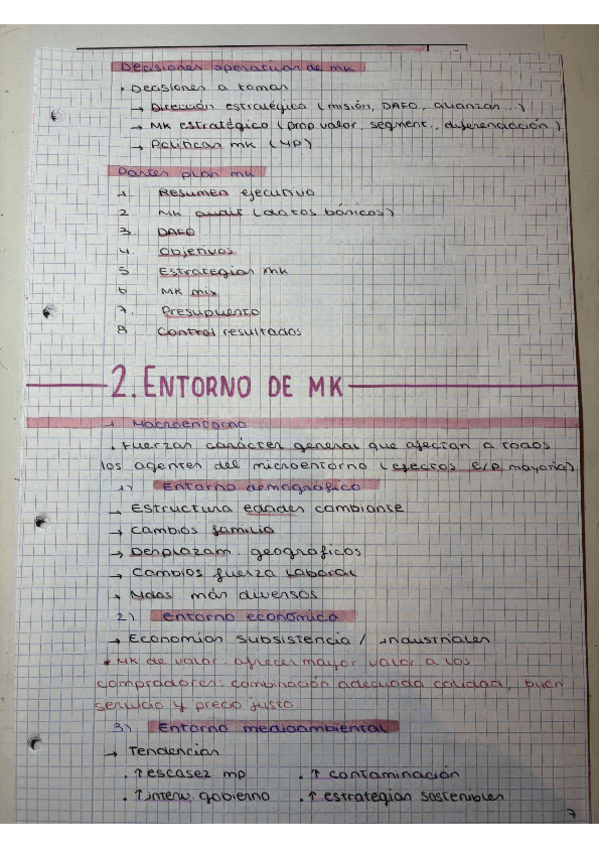 Decisiones operativas de mk
• Decisiones a tomar
→ Dirección estratégica (misión, DAFO, alianzas...)
→ MK estratégico (prop valor, segment., diferenciación)
→ Políticas mk (4P)
Partes plan mk
1. Resumen ejecutivo
2 MK audit (datos básicos)
3. DAFO
4. Objetivos
5 Estrategias mk
6 MK mix
7. Presupuesto
8. Control resultados
2. ENTORNO DE MK
→ Macroentorno
• Fuerzas carácter general que afectan a todos
los agentes del microentorno (efectos e/p mayoría)
1) Entorno demográfico
→ Estructura edades cambiante
→ Cambios familia
→ Desplazam. geográficos
→ Cambios fuerza laboral
→ Ndas más diversos
2) Entorno económico
→ Economías subsistencia / industriales
• MK de valor: ofrecer mayor valor a los
compradores: combinación adecuada calidad, buen
servicio y precio justo.
3) Entorno medioambiental
→ Tendencias
. ↑ escasez mp . ↑ contaminación
. ↑ interv. gobierno . ↑ estrategias sostenibles
7